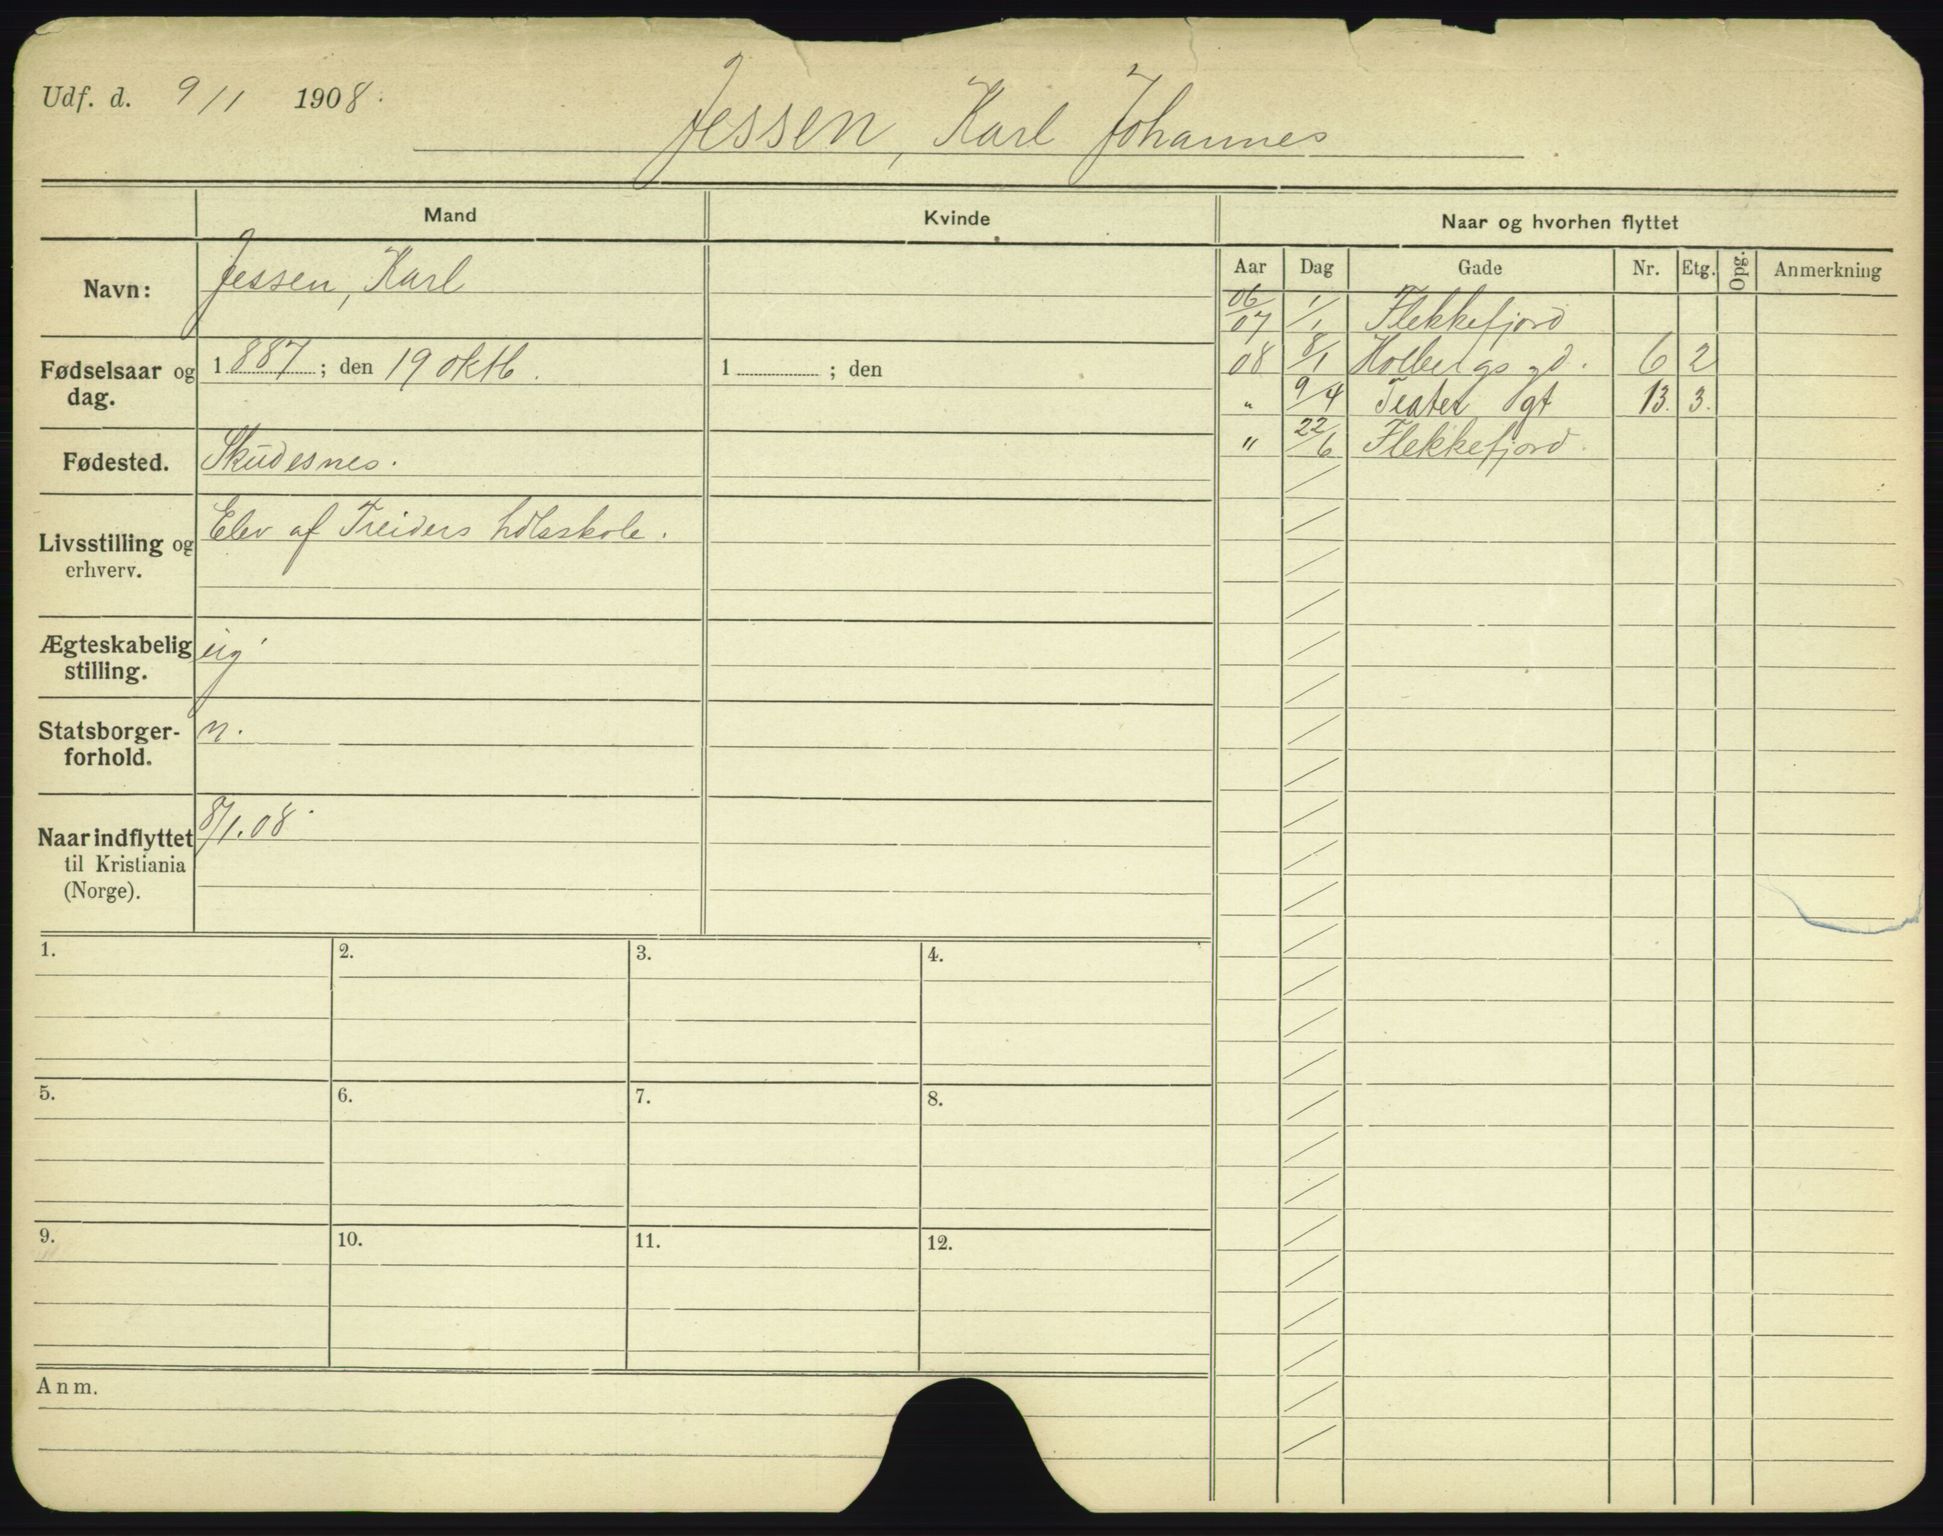 Udf. d. 9/1 1908.
Jessen, Karl Johannes
Mand Kvinde Naar og hvorhen flyttet
Aar Dag Gade Nr. Etg. Opg. Anmerkning
Navn: Jessen, Karl
Fødselsaar og dag. 1887; den 19 oktb. 1 ; den
Fødested. Skudesnes.
Livsstilling og erhverv. Elev af Treiders hdlsskole.
Ægteskabelig stilling. ug
Statsborgerforhold. n.
Naar indflyttet til Kristiania (Norge). 8/1.08.
06/07 1/1 Flekkefjord
08 8/1 Holbergs gd. 6 2
" 9/4 Teater gt 13. 3.
" 22/6 Flekkefjord.
1. 2. 3. 4.
5. 6. 7. 8.
9. 10. 11. 12.
Anm.